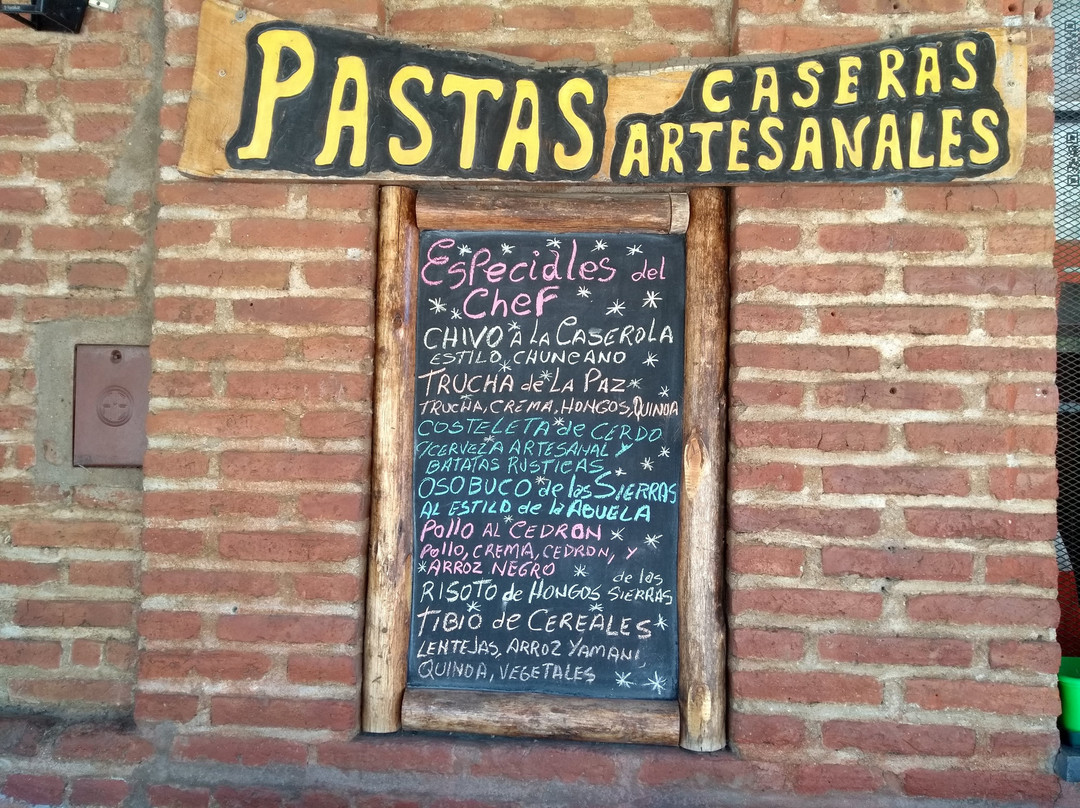 PASTAS CASERAS
ARTESANALES
Especiales del
Chef
CHIVO A LA CASEROLA
ESTILO CHUNCANO
TRUCHA de LA PAZ
TRUCHA, CREMA, HONGOS, QUINOA
COSTELETA de CERDO
c/CERVEZA ARTESANAL Y
BATATAS RUSTICAS
OSOBUCO de las SIERRAS
AL ESTILO de la ABUELA
Pollo AL CEDRON
Pollo, CREMA, CEDRON, Y
ARROZ NEGRO
RISOTO de HONGOS de las SIERRAS
TIBIO de CEREALES
LENTEJAS, ARROZ YAMANI,
QUINOA, VEGETALES